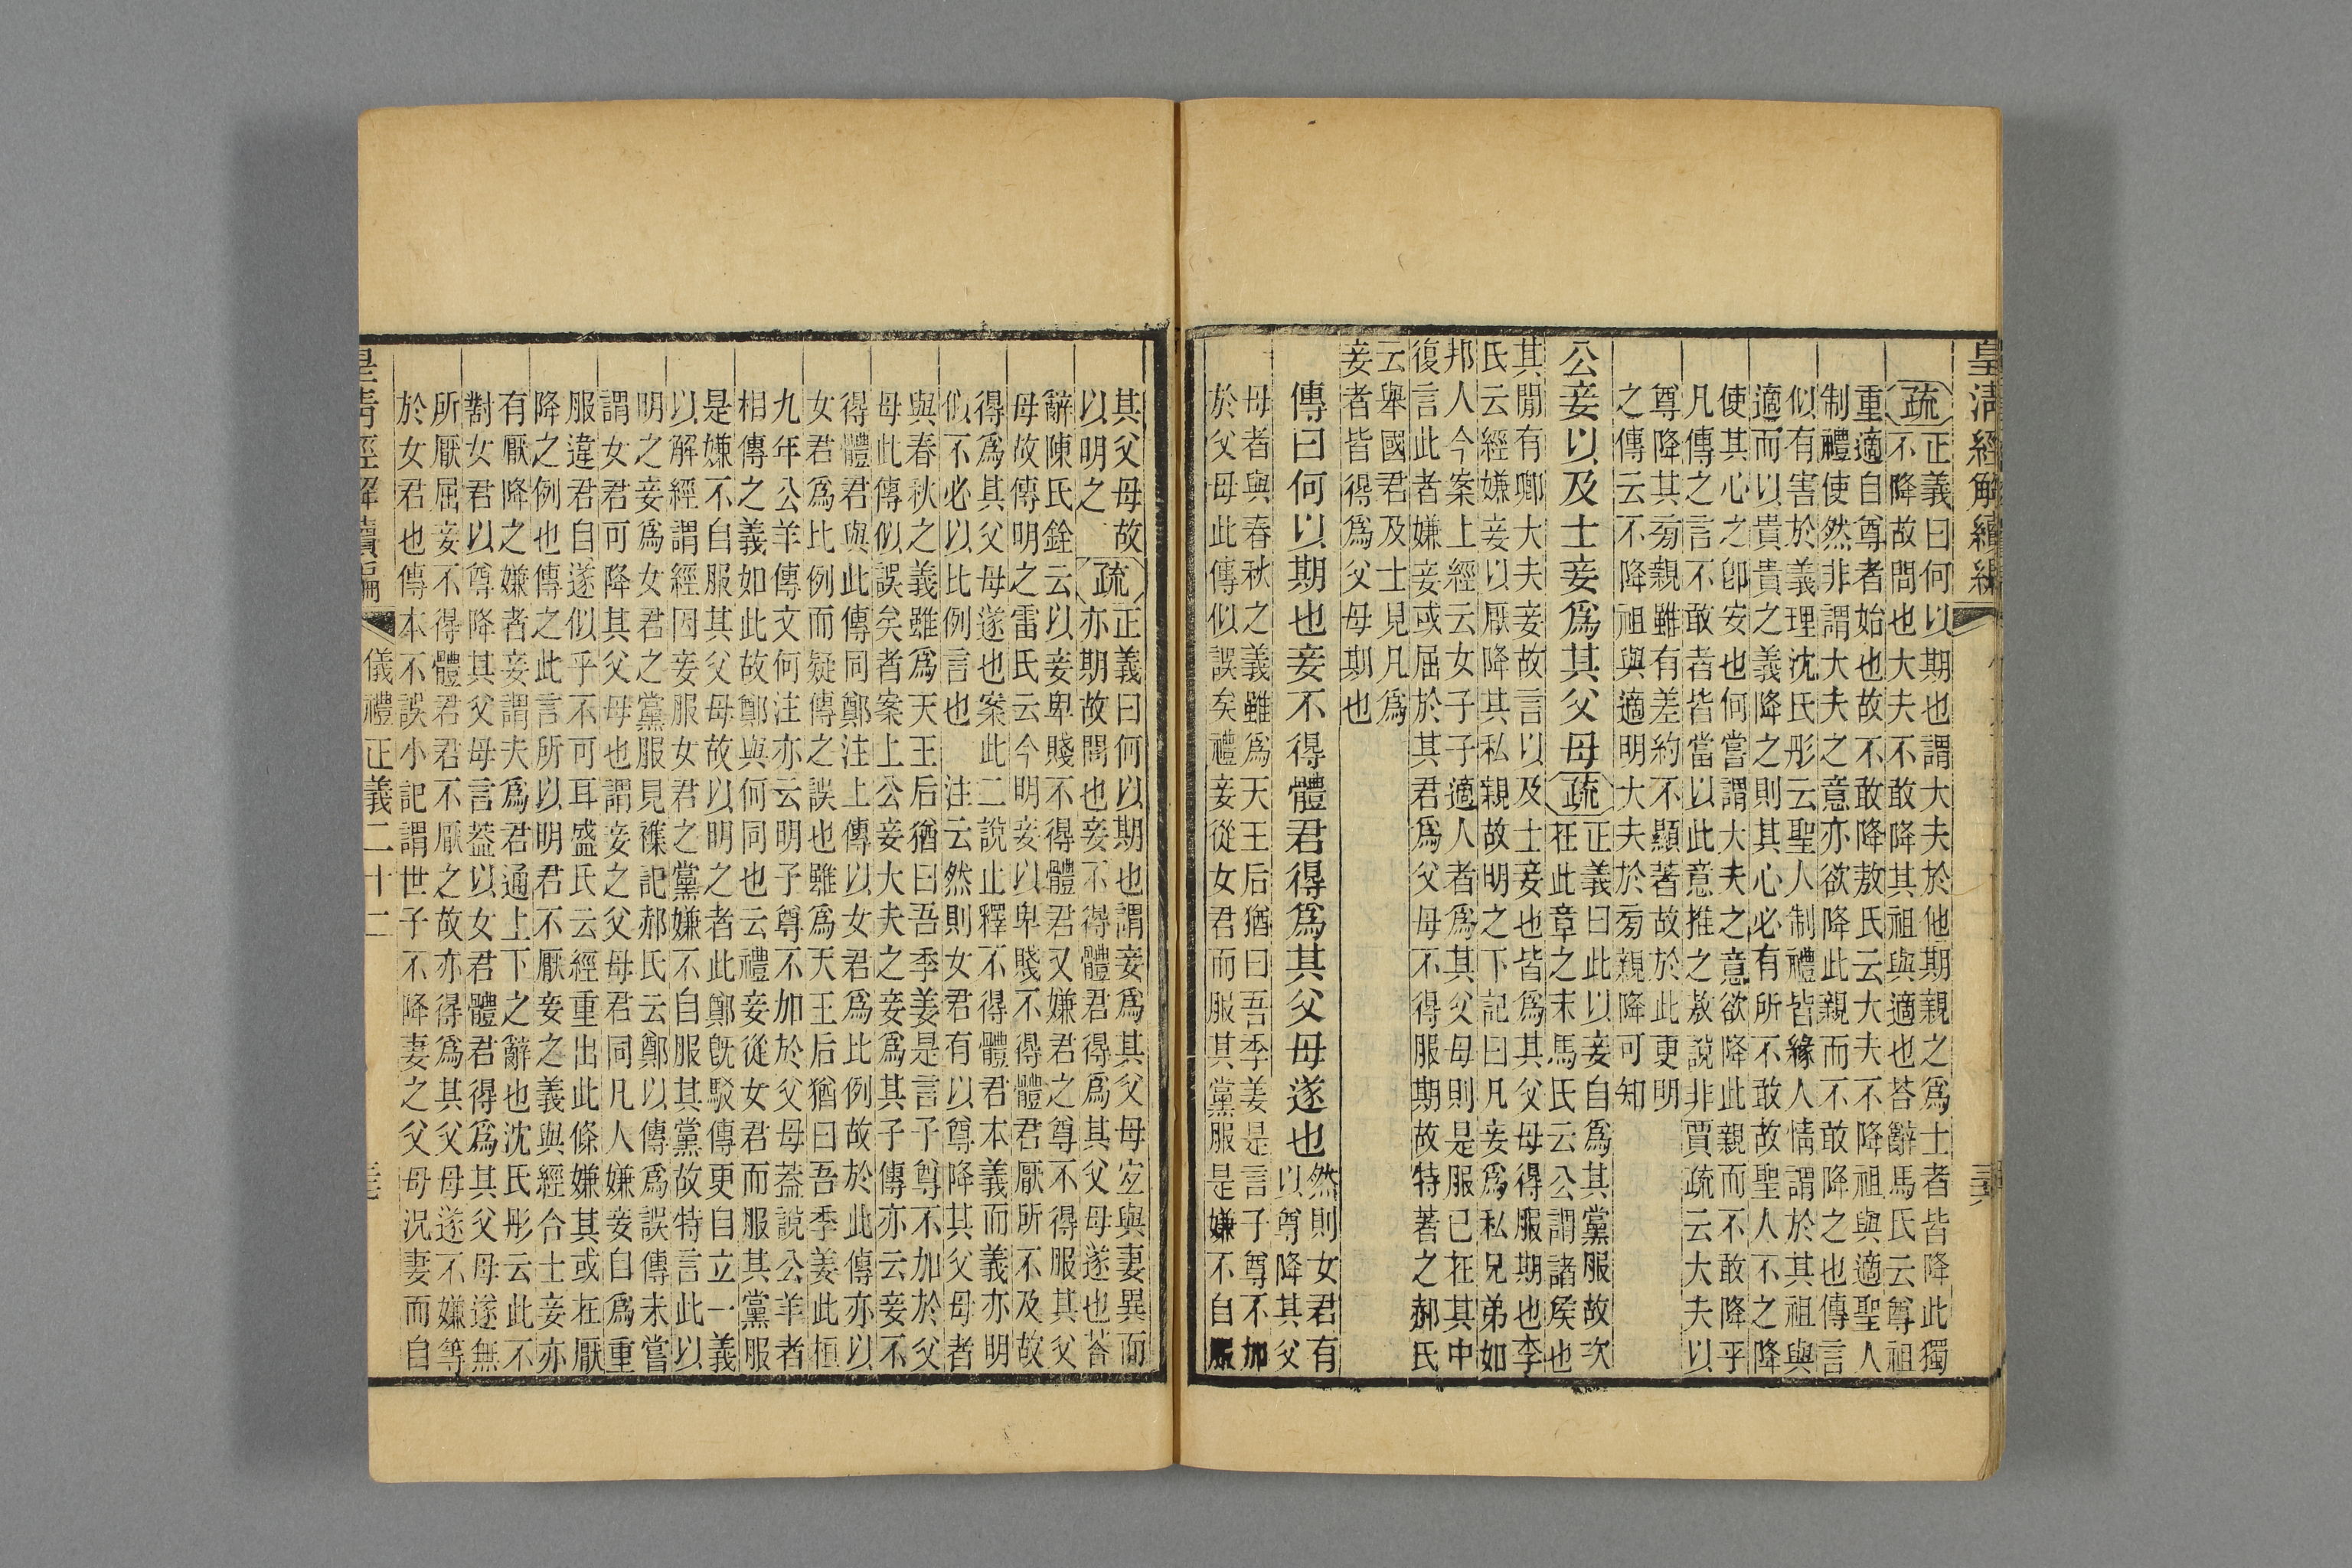 皇清經解續編
疏
正義曰何以期也謂大夫於他期親之爲士者皆降此獨
不降故問也大夫不敢降其祖與適也荅辭馬氏云尊祖
重適自尊者始也故不敢降敖氏云大夫不降祖與適聖人
制禮使然非謂大夫之意亦欲降此親而不敢降之也傳言
似有害於義理沈氏彤云聖人制禮皆緣人情謂於其祖與
適而以貴貴之義降之則其心必有所不敢故聖人不之降
使其心之卽安也何嘗謂大夫之意欲降此親而不敢降乎
凡傳之言不敢者皆當以此意推之敖說非賈疏云大夫以
尊降其㫄親雖有差約不顯著故於此更明
之傳云不降祖與適明大夫於㫄親降可知
公妾以及士妾爲其父母
疏
正義曰此以妾自爲其黨服故次
在此章之末馬氏云公謂諸侯也
其閒有卿大夫妾故言以及士妾也皆爲其父母得服期也李
氏云經嫌妾以厭降其私親故明之下記曰凡妾爲私兄弟如
邦人今案上經云女子子適人者爲其父母則是服已在其中
復言此者嫌妾或屈於其君爲父母不得服期故特著之郝氏
云舉國君及士見凡爲
妾者皆得爲父母期也
傳曰何以期也妾不得體君得爲其父母遂也
然則女君有
以尊降其父
母者與春秋之義雖爲天王后猶曰吾季姜是言子尊不加
於父母此傳似誤矣禮妾從女君而服其黨服是嫌不自服
其父母故
以明之
疏
正義曰何以期也謂妾爲其父母宐與妻異而
亦期故問也妾不得體君得爲其父母遂也荅
辭陳氏銓云以妾卑賤不得體君又嫌君之尊不得服其父
母故傳明之雷氏云今明妾以卑賤不得體君厭所不及故
得爲其父母遂也案此二說止釋不得體君本義而義亦明
似不必以比例言也 注云然則女君有以尊降其父母者
與春秋之義雖爲天王后猶曰吾季姜是言子尊不加於父
母此傳似誤矣者案上公妾大夫之妾爲其子傳亦云妾不
得體君與此傳同鄭注上傳以女君爲比例故於此傳亦以
女君爲比例而疑傳之誤也雖爲天王后猶曰吾季姜此桓
九年公羊傳文何注亦云明子尊不加於父母葢說公羊者
相傳之義如此故鄭與何同也云禮妾從女君而服其黨服
是嫌不自服其父母故以明之者此鄭旣駁傳更自立一義
以解經謂經因妾服女君之黨嫌不自服其黨故特言此以
明之妾爲女君之黨服見襍記郝氏云鄭以傳爲誤傳未嘗
謂女君可降其父母也謂妾之父母君同凡人嫌妾自爲重
服違君自遂似乎不可耳盛氏云經重出此條嫌其或在厭
降之例也傳之此言所以明君不厭妾之義與經合士妾亦
有厭降之嫌者妾謂夫爲君通上下之辭也沈氏彤云此不
對女君以尊降其父母言葢以女君體君得爲其父母遂無
所厭屈妾不得體君君不厭之故亦得爲其父母遂不嫌等
於女君也傳本不誤小記謂世子不降妻之父母況妻而自
儀禮正義二十二